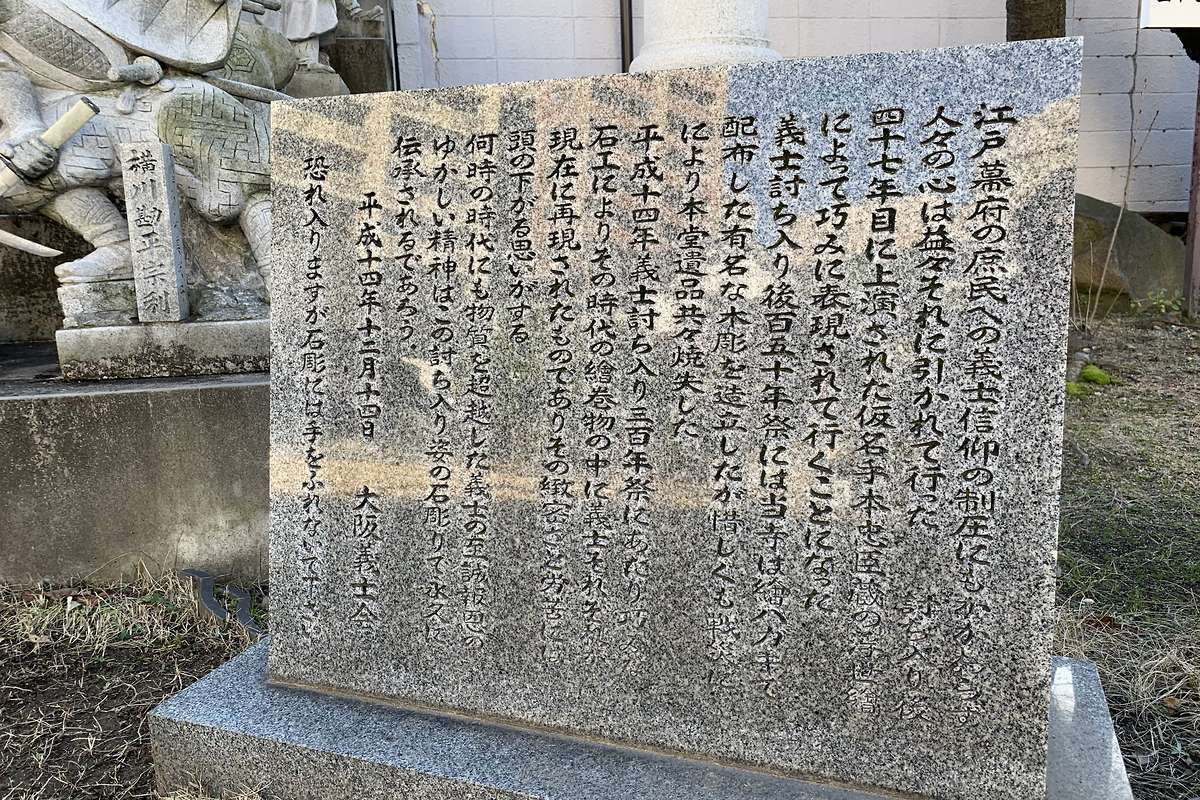 江戸幕府の庶民への義士信仰の制圧にもかかわらず
人々の心は益々それに引かれて行った 討ち入り後
四十七年目に上演された仮名手本忠臣蔵の浮世繪
によって巧みに表現されて行くことになった
義士討ち入り後百五十年祭には当寺は繪ヘガキて
配布した有名な木彫を造立したが惜しくも戦災
により本堂遺品共々焼失した
平成十四年義士討ち入り三百年祭にあたり
石工によりその時代の繪巻物の中に義士それぞれ
現在に再現されたものてありその緻密さと労苦には
頭の下がる思いがする
何時の時代にも物質を超越した義士の至誠報恩の
ゆかしい精神はこの討ち入り姿の石彫りて永久に
伝承されるであろう。
平成十四年十二月十四日 大阪義士会
恐れ入りますが石彫には手をふれないて下さい
磯川勘平宗利